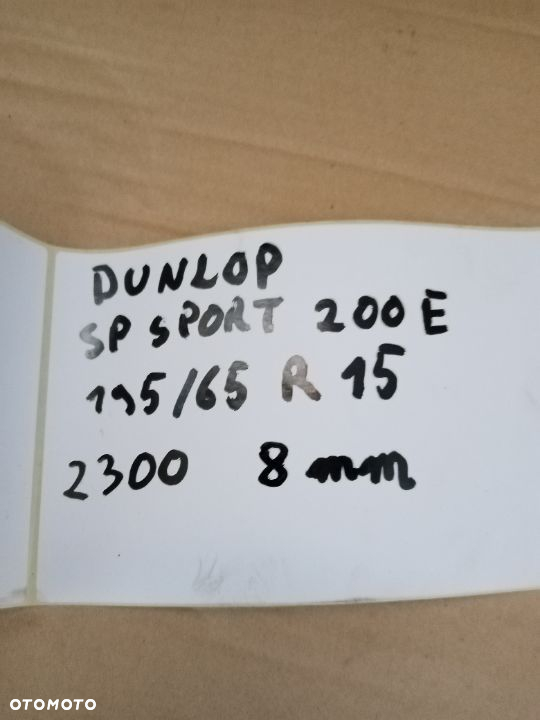 DUNLOP
SP SPORT 200 E
195/65 R 15
2300 8 mm
OTOMOTO